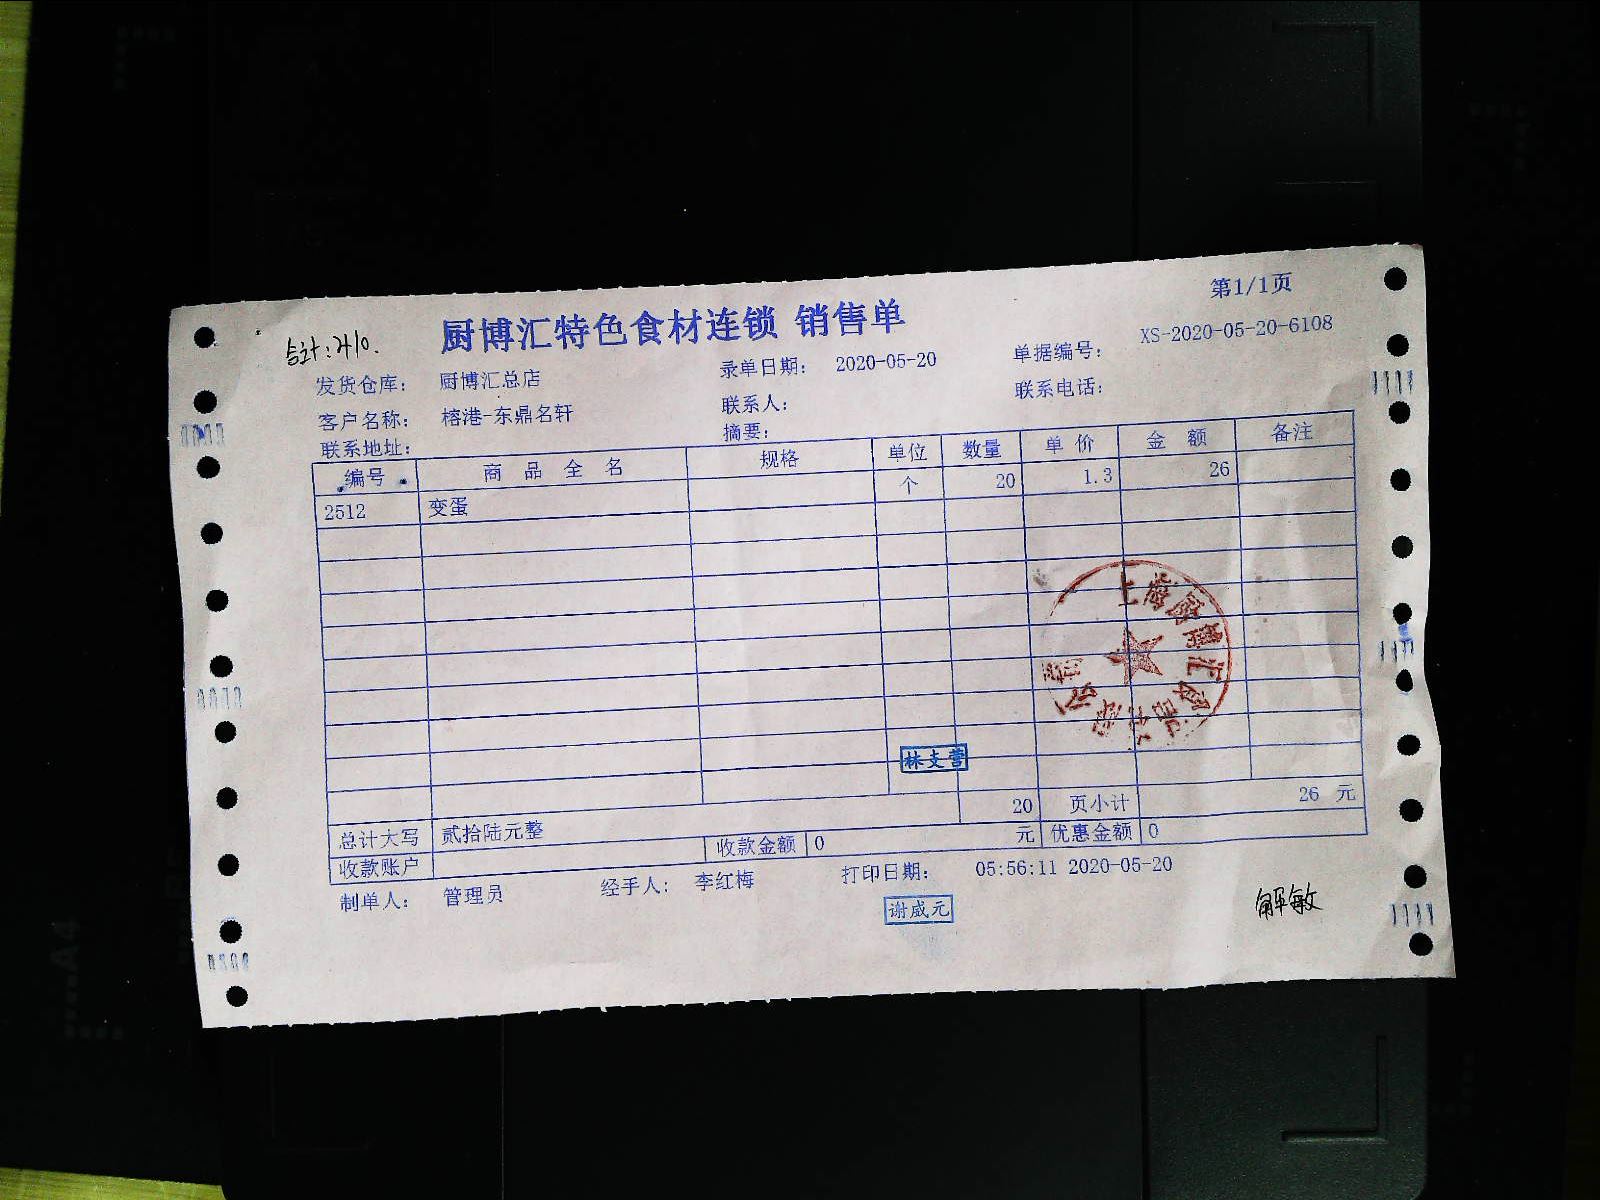 第1/1页
厨博汇特色食材连锁 销售单
合计:210.
发货仓库: 厨博汇总店 录单日期: 2020-05-20 单据编号: XS-2020-05-20-6108
客户名称: 榕港-东鼎名轩 联系人: 联系电话:
联系地址: 摘要:
编号 商品全名 规格 单位 数量 单价 金额 备注
2512 变蛋 个 20 1.3 26
上海厨博汇食品有限公司
林支营
20 页小计 26 元
总计大写 贰拾陆元整 收款金额 0 元 优惠金额 0
收款账户
制单人: 管理员 经手人: 李红梅 打印日期: 05:56:11 2020-05-20
谢威元
解敏